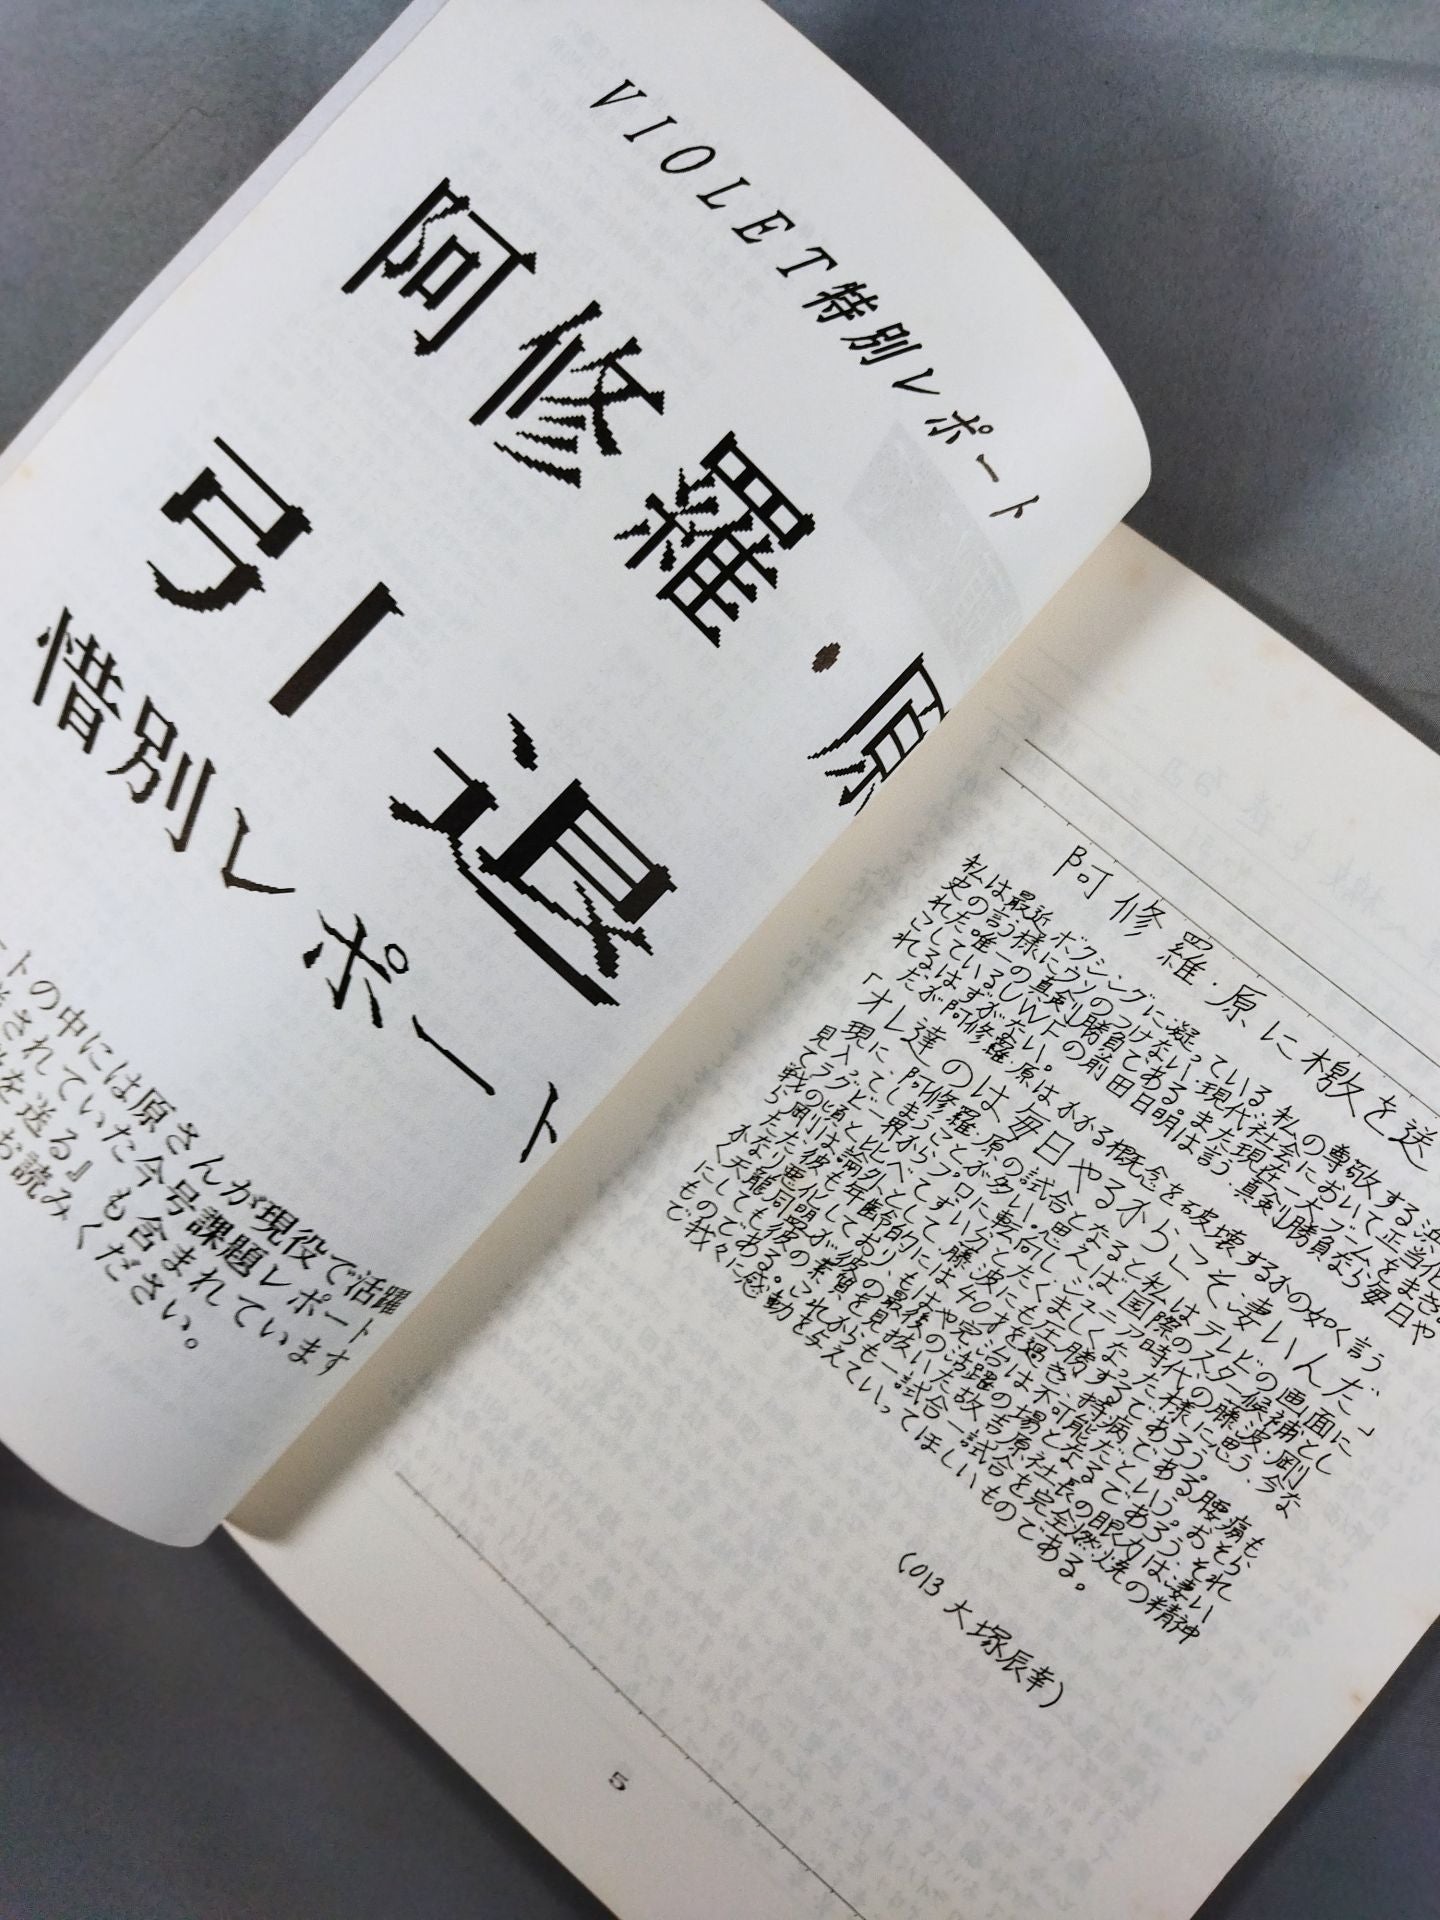 VIOLET特別レポート
阿修羅・原
引退
惜別レポート
ートの中には原さんが現役で活躍
されていた今号課題レポート
を送る』も含まれています
お読みください。
阿修羅・原に檄を送
私は最近ボクシングに凝っている。私の尊敬する浜
史の言う様にウソのつけない、現代社会において正当化
れた唯一の真剣勝負である。また現在一大ブームをまき
こしているUWFの前田日明は言う、真剣勝負なら毎日や
れるはずがない。
だが阿修羅・原はかかる概念を破壊するかの如く言う
「オレ達のは毎日やるからこそ凄いんだ」
現に、阿修羅・原の試合となると私はテレビの画面に
見入ってしまうことが多い。思えば国際のスター候補とし
てラグビー界からプロに転向し、ジュニア時代の藤波、剛
戦の頃と比べてずい分とたくましくなった様に思う、今な
ら剛は論外として藤波にも圧勝するであろう。
ただ彼も年齢的には40才を過ぎ、持病である腰痛も、
かなり悪化しており、もはや完治は不可能だという。おそら
く天龍同盟が彼の最後の活躍の場となるであろう、それ
にしても彼の素質を見抜いた故吉原社長の眼力は凄い
ものである。これからも一試合一試合を完全燃焼の精神
で我々に感動を与えていってほしいものである。
(013 大塚辰幸)
5